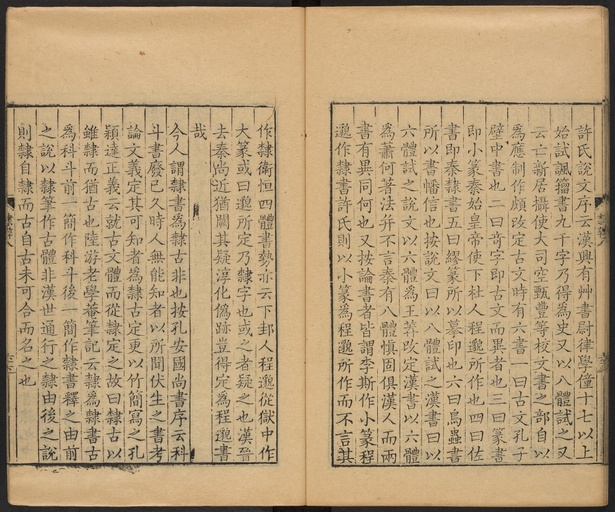 許氏說文序云漢興有艸書尉律學僮十七以上
始試諷籒書九千字乃得爲史又以八體試之又
云亡新居攝使大司空甄豐等校文書之部自以
爲應制作頗改定古文時有六書一曰古文孔子
壁中書也二曰奇字即古文而異者也三曰篆書
即小篆秦始皇帝使下杜人程邈所作也四曰佐
書即秦隸書五曰繆篆所以摹印也六曰鳥蟲書
所以書幡信也按說文曰以八體試之漢書曰以
六體試之說文以六體爲王莽改定漢書以六體
爲蕭何著法并不言秦有八體慎固俱漢人而兩
書有異同何也又按論書者皆謂李斯作小篆程
邈作隸書許氏則以小篆爲程邈所作而不言其
作隸衛恒四體書勢亦云下邽人程邈從獄中作
大篆或曰邈所定乃隸字也或之者疑之也漢晉
去秦尚近猶闕其疑淳化僞跡豈得定爲程邈書
哉
今人謂隸書爲隸古非也按孔安國尚書序云科
斗書廢已久時人無能知者以所聞伏生之書考
論文義定其可知者爲隸古定更以竹簡寫之孔
穎達正義云就古文體而從隸定之故曰隸古以
雖隸而猶古也陸游老學菴筆記云隸爲隸書古
爲科斗前一簡作科斗後一簡作隸書釋之由前
之說以隸筆作古體非漢世通行之隸由後之說
則隸自隸而古自古未可合而名之也